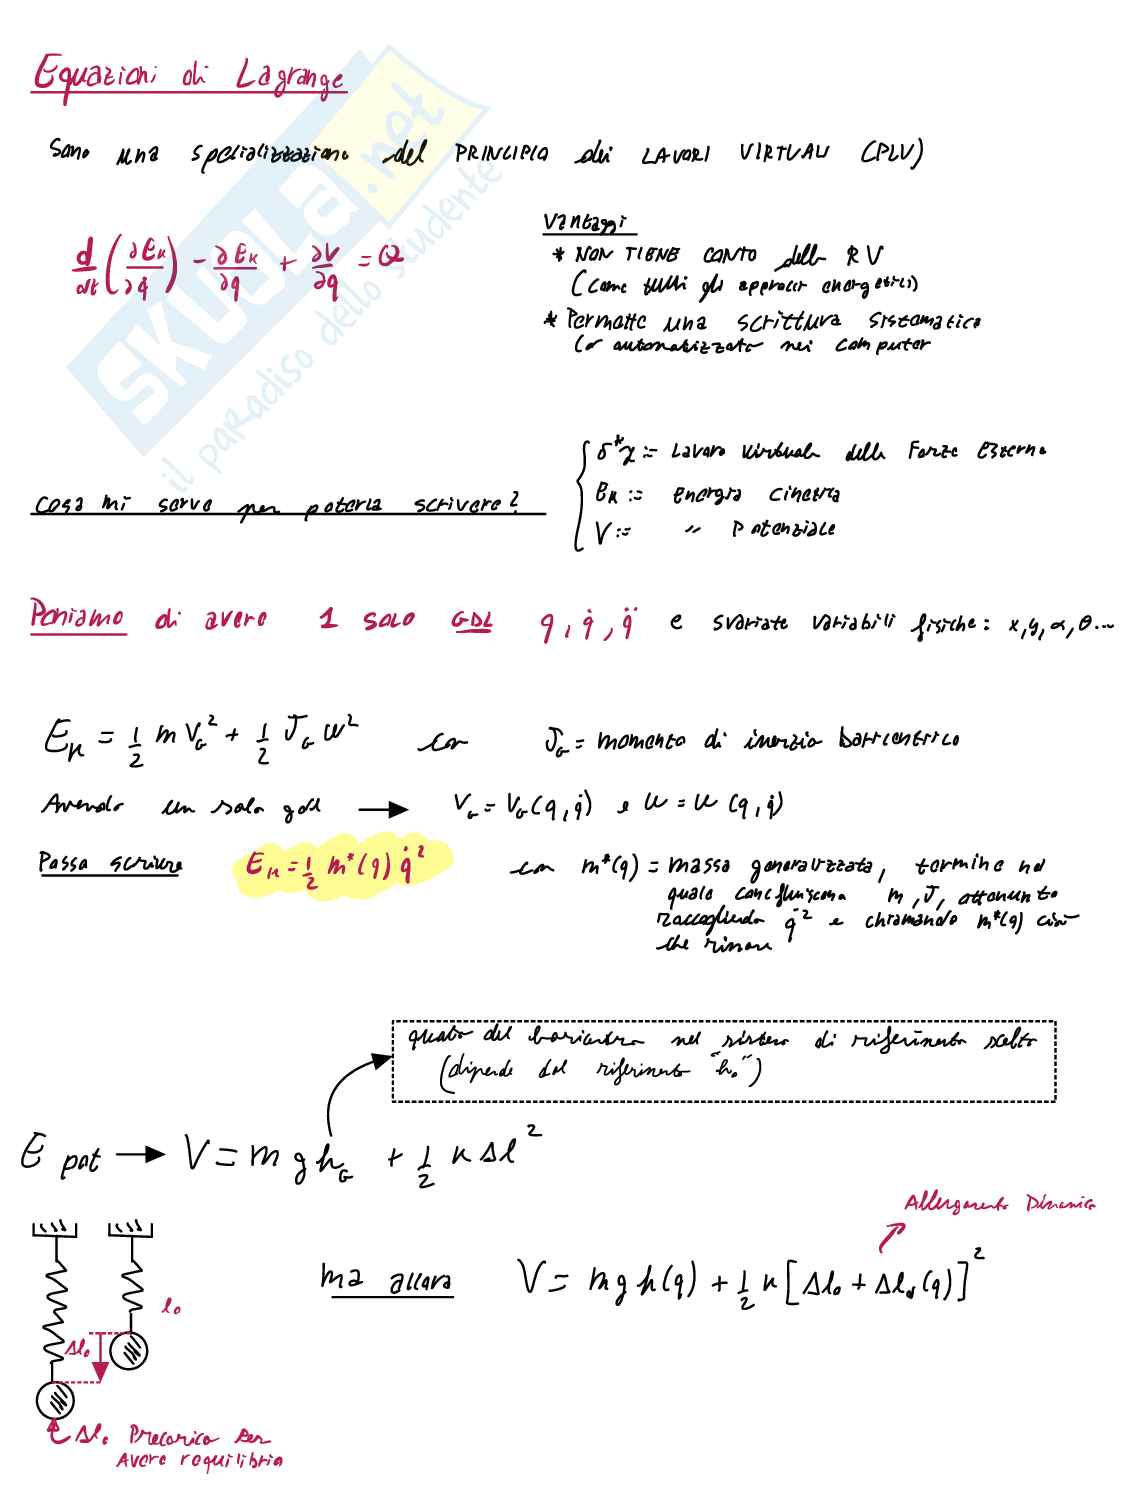 Equazioni di Lagrange
Sono una specializzazione del PRINCIPIO dei LAVORI VIRTUALI (PLV)
d/dt (∂Ek/∂q̇) - ∂Ek/∂q + ∂V/∂q = Q
Vantaggi
* NON TIENE CONTO delle RV
(come tutti gli approcci energetici)
* Permette una scrittura sistematica
(o automatizzata nei computer
SKUOLA.net
il paradiso dello studente
Cosa mi serve per poterla scrivere?
δ*L := Lavoro virtuale delle Forze Esterne
Ek := Energia cinetica
V := " Potenziale
Poniamo di avere 1 solo GDL q, q̇, q̈ e svariate variabili fisiche: x, y, α, θ...
Ek = 1/2 m VG² + 1/2 JG ω² con JG = momento di inerzia baricentrico
Avendo un solo gdl → VG = VG(q, q̇) e ω = ω(q, q̇)
Posso scrivere Ek = 1/2 m*(q) q̇² con m*(q) = massa generalizzata, termine nel
quale confluiscono m, J, ottenuto
raccogliendo q̇² e chiamando m*(q) ciò
che rimane
quota del baricentro nel sistema di riferimento scelto
(dipende dal riferimento "h₀")
E pot → V = m g hG + 1/2 k Δl²
Allungamento Dinamico
ma allora V = m g h(q) + 1/2 k [Δl₀ + Δld(q)]²
l₀
Δl₀
Δl₀ Precarico per
Avere requilibrio